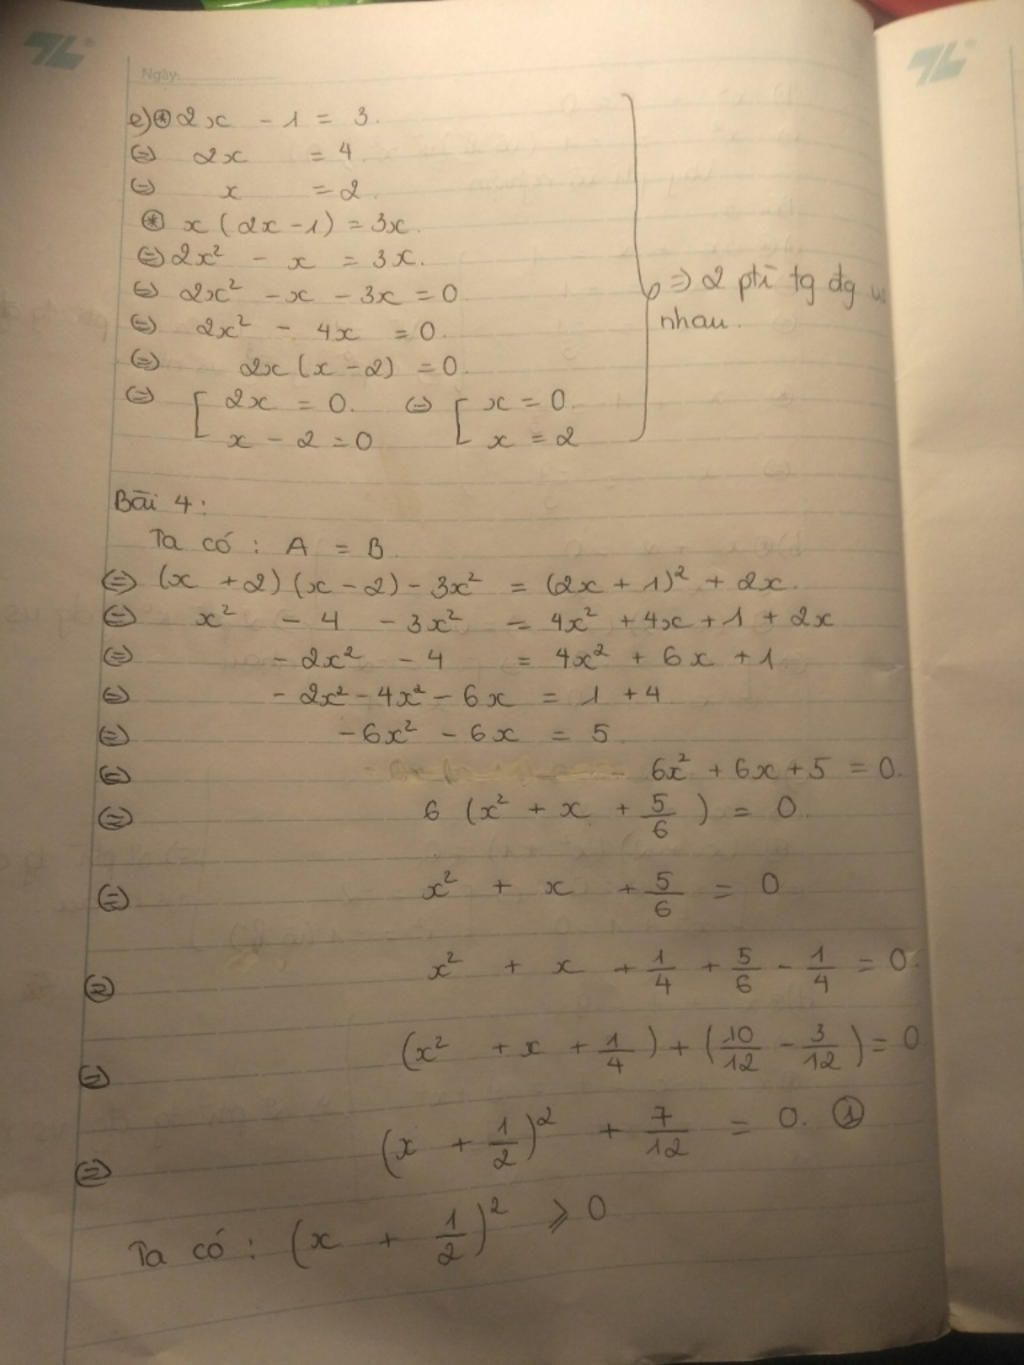 Ngày:
e) ⊛ 2x - 1 = 3.
⇔ 2x = 4
⇔ x = 2.
⊛ x(2x-1) = 3x.
⇔ 2x² - x = 3x.
⇔ 2x² - x - 3x = 0
⇔ 2x² - 4x = 0.
⇔ 2x(x-2) = 0
⇔ [ 2x = 0. ⇔ [ x = 0.
x - 2 = 0 x = 2
⇒ 2 ptr tg đg
nhau.
Bài 4:
Ta có: A = B.
⇔ (x + 2)(x - 2) - 3x² = (2x + 1)² + 2x.
⇔ x² - 4 - 3x² = 4x² + 4x + 1 + 2x
⇔ - 2x² - 4 = 4x² + 6x + 1
⇔ - 2x² - 4x² - 6x = 1 + 4
⇔ - 6x² - 6x = 5
⇔ 6x² + 6x + 5 = 0.
⇔ 6 (x² + x + 5/6) = 0
⇔ x² + x + 5/6 = 0
⇔ x² + x + 1/4 + 5/6 - 1/4 = 0.
⇔ (x² + x + 1/4) + (10/12 - 3/12) = 0
⇔ (x + 1/2)² + 7/12 = 0. ①
Ta có: (x + 1/2)² ⩾ 0